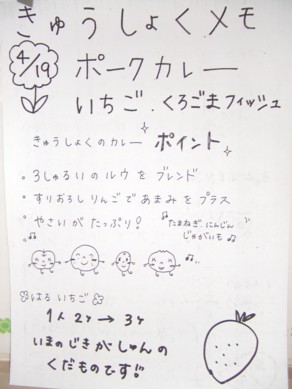 きゅうしょくメモ
4/19
ポークカレー
いちご.くろごまフィッシュ
きゅうしょくのカレー ポイント
・3しゅるいのルウをブレンド
・すりおろしりんごであまみをプラス
・やさいがたっぷり!
たまねぎ.にんじん
じゃがいも
はるいちご
1人 2ヶ→3ヶ
いまのじきがしゅんの
くだものです!!